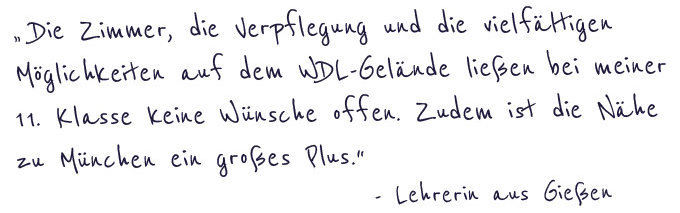 „Die Zimmer, die Verpflegung und die vielfältigen
Möglichkeiten auf dem WDL-Gelände ließen bei meiner
11. Klasse keine Wünsche offen. Zudem ist die Nähe
zu München ein großes Plus.“
- Lehrerin aus Gießen